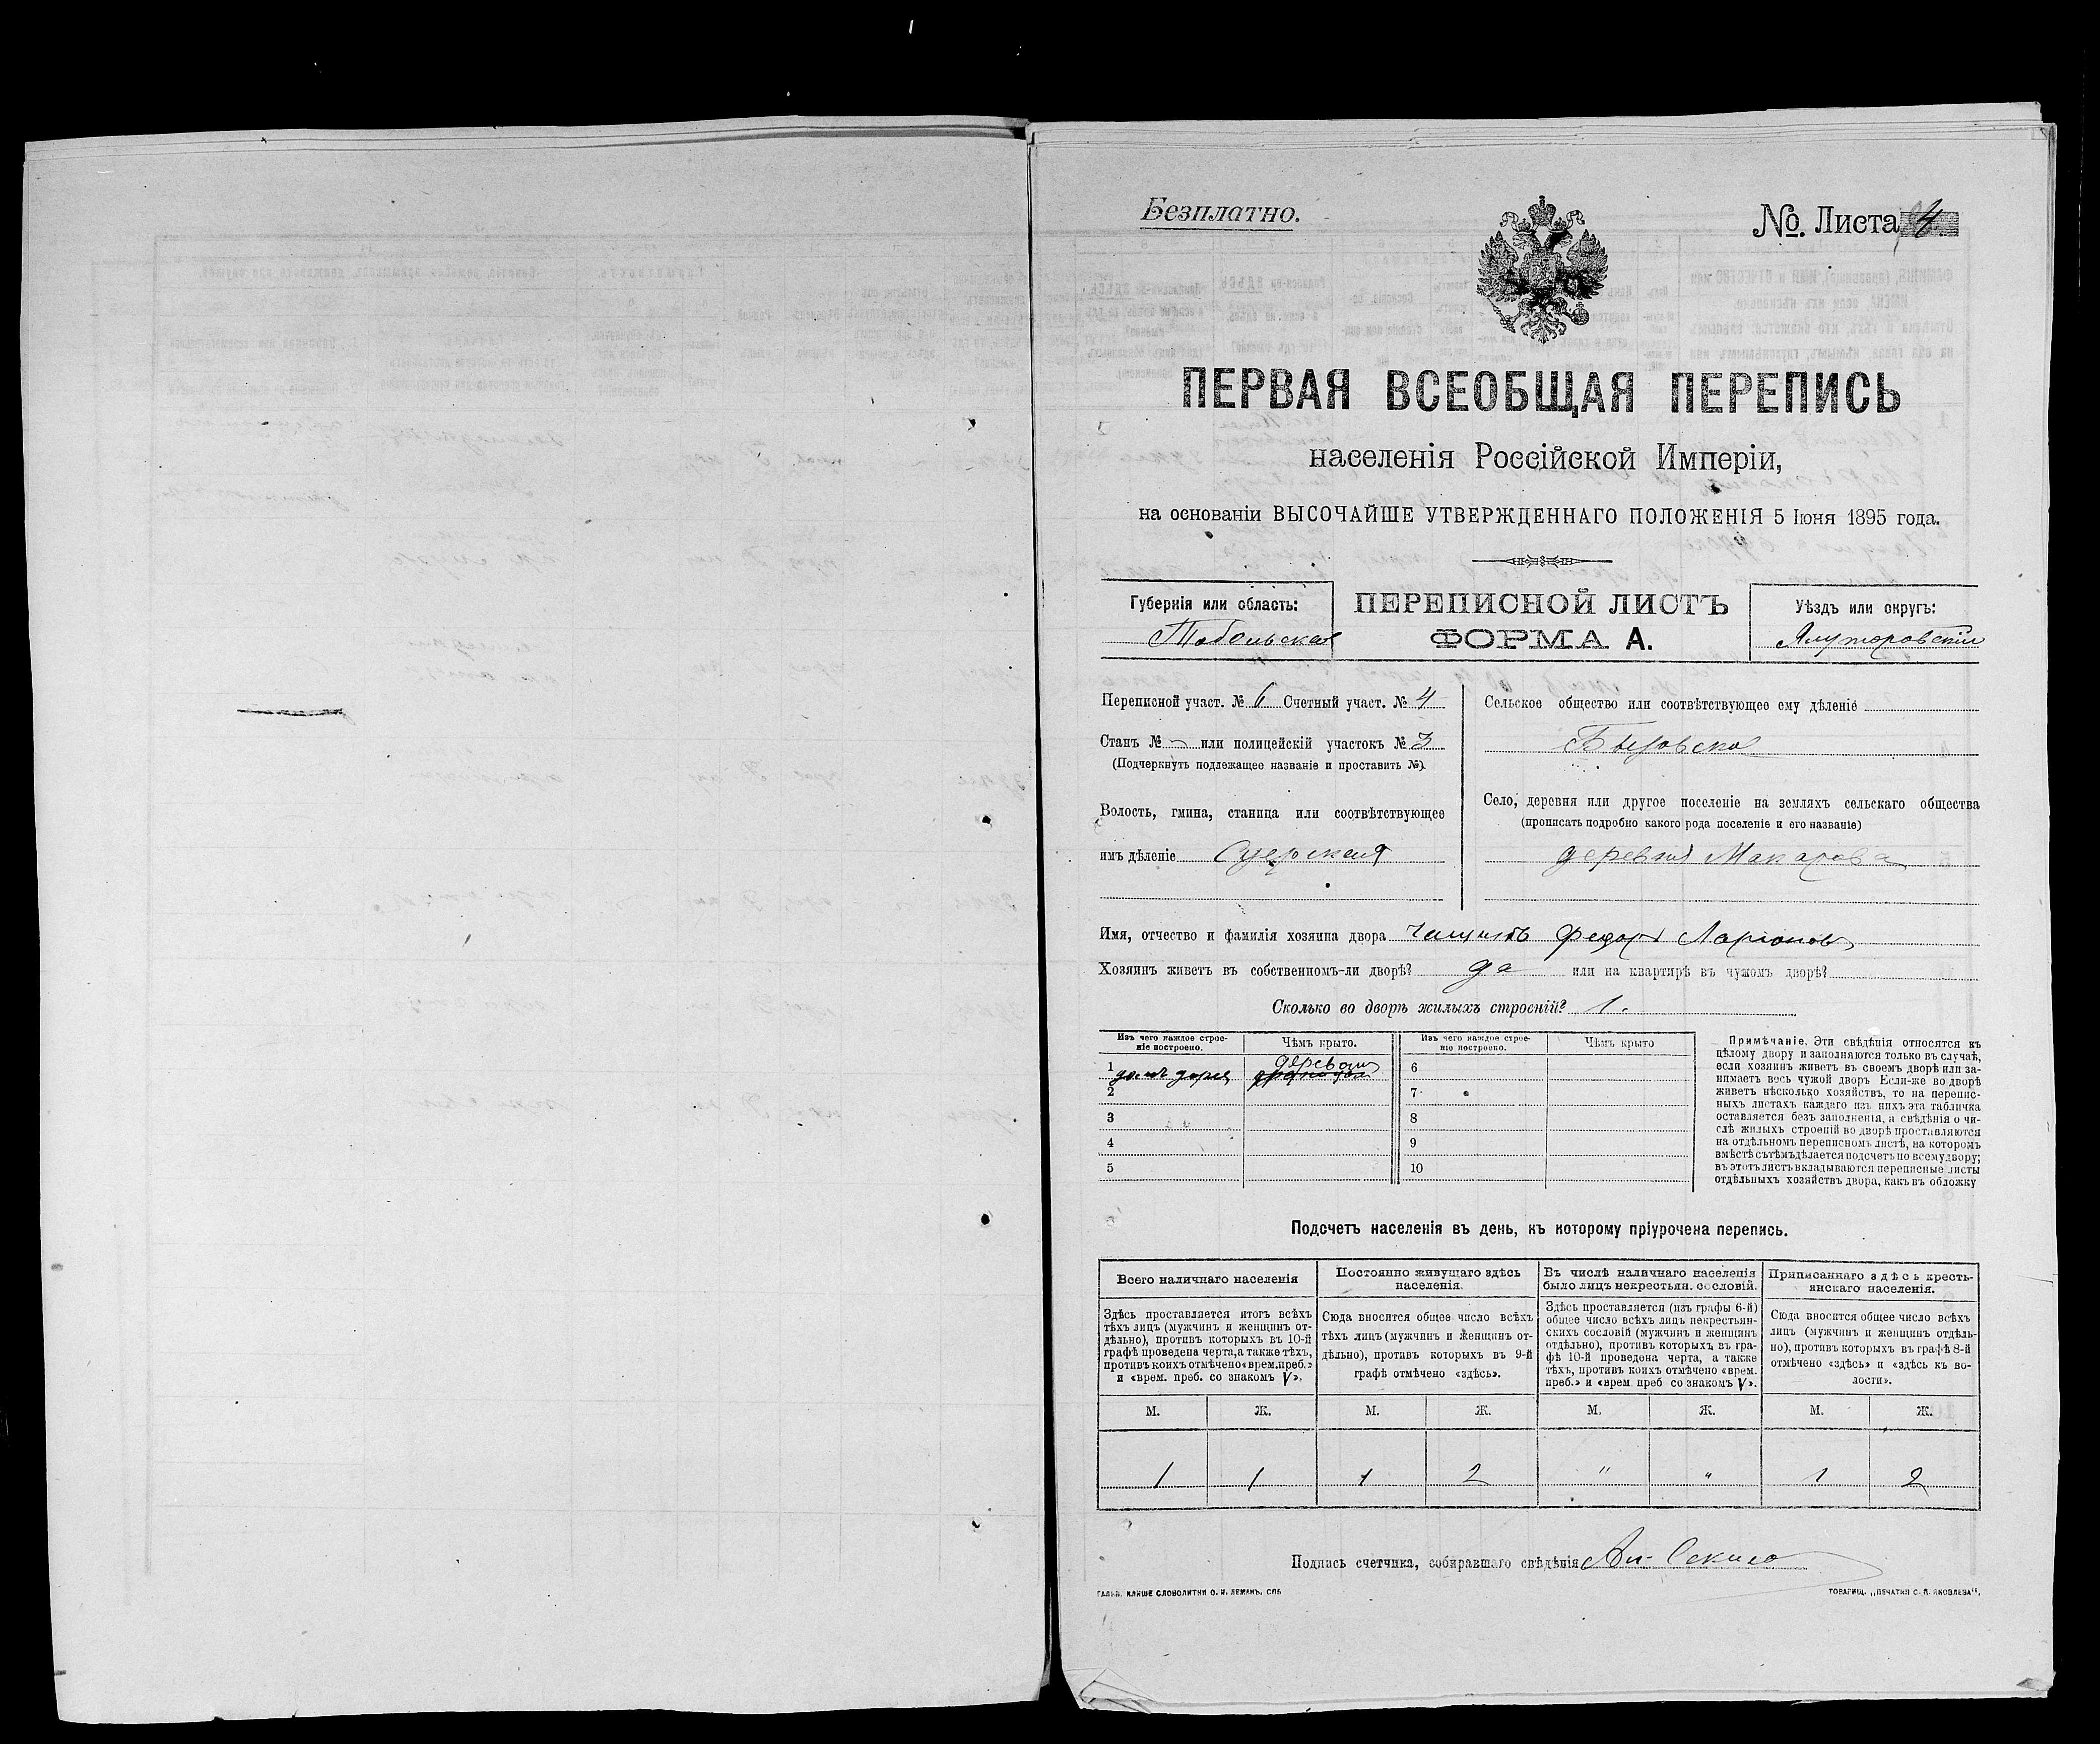 Безплатно.
№. Листа 4.
ПЕРВАЯ ВСЕОБЩАЯ ПЕРЕПИСЬ
населенія Россійской Имперіи,
на основаніи ВЫСОЧАЙШЕ УТВЕРЖДЕННАГО ПОЛОЖЕНІЯ 5 Іюня 1895 года.
Губернія или область:
Тобольская
ПЕРЕПИСНОЙ ЛИСТЪ
ФОРМА А.
Уѣздъ или округъ:
Ялуторовскій
Переписной участ. № 6 Счетный участ. № 4
Станъ № - или полицейскій участокъ № 3
(Подчеркнуть подлежащее названіе и проставить №).
Волость, гмина, станица или соотвѣтствующее
имъ дѣленіе Суерская
Сельское общество или соотвѣтствующее ему дѣленіе
Село, деревня или другое поселеніе на земляхъ сельскаго общества
(прописать подробно какого рода поселеніе и его названіе)
деревня Макарова
Имя, отчество и фамилія хозяина двора Чащинъ Федоръ Ларионовъ
Хозяинъ живетъ въ собственномъ-ли дворѣ? да или на квартирѣ въ чужомъ дворѣ?
Сколько во дворѣ жилыхъ строеній? 1.
Изъ чего каждое строе-
ніе построено.
Чѣмъ крыто.
Изъ чего каждое строе-
ніе построено.
Чѣмъ крыто
1 6
2 7
3 8
4 9
5 10
Примѣчаніе. Эти свѣдѣнія относятся къ
цѣлому двору и заполняются только въ случаѣ,
если хозяинъ живетъ въ своемъ дворѣ или за-
нимаетъ весь чужой дворъ Если-же во дворѣ
живетъ нѣсколько хозяйствъ, то на перепис-
ныхъ листахъ каждаго изъ нихъ эта табличка
оставляется безъ заполненія, а свѣдѣнія о чи-
слѣ жилыхъ строеній во дворѣ проставляются
на отдѣльномъ переписномъ листѣ, на которомъ
вмѣстѣ съ тѣмъ дѣлается подсчетъ по всему двору;
въ этотъ листъ вкладываются переписные листы
отдѣльныхъ хозяйствъ двора, какъ въ обложку
Подсчетъ населенія въ день, къ которому пріурочена перепись.
Всего наличнаго населенія
Здѣсь проставляется итогъ всѣхъ
тѣхъ лицъ (мужчинъ и женщинъ от-
дѣльно), противъ которыхъ въ 10-й
графѣ проведена черта, а также тѣхъ,
противъ коихъ отмѣчено «врем.преб.»
и «врем. преб. со знакомъ V».
Постоянно живущаго здѣсь
населенія.
Сюда вносится общее число всѣхъ
тѣхъ лицъ (мужчинъ и женщинъ от-
дѣльно), противъ которыхъ въ 9-й
графѣ отмѣчено «здѣсь».
Въ числѣ наличнаго населенія
было лицъ некрестьян. сословій.
Здѣсь проставляется (изъ графы 6-й)
общее число всѣхъ лицъ некрестьян-
скихъ сословій (мужчинъ и женщинъ
отдѣльно), противъ которыхъ въ гра-
фѣ 10-й проведена черта, а также
тѣхъ, противъ коихъ отмѣчено «врем.
преб.» и «врем. преб со знакомъ V».
Приписаннаго здѣсь кресть-
янскаго населенія.
Сюда вносится общее число всѣхъ
лицъ (мужчинъ и женщинъ отдѣль-
но), противъ которыхъ въ графѣ 8-й
отмѣчено «здѣсь» и «здѣсь къ во-
лости».
М. Ж. М. Ж. М. Ж. М. Ж.
1 1 1 2 " " 1 2
Подпись счетчика, собиравшаго свѣдѣнія
ГАЛЬВ. КЛИШЕ СЛОВОЛИТНИ О. И. ЛЕМАНЪ, СПБ
ТОВАРИЩ. „ПЕЧАТНЯ С. П. ЯКОВЛЕВА“.